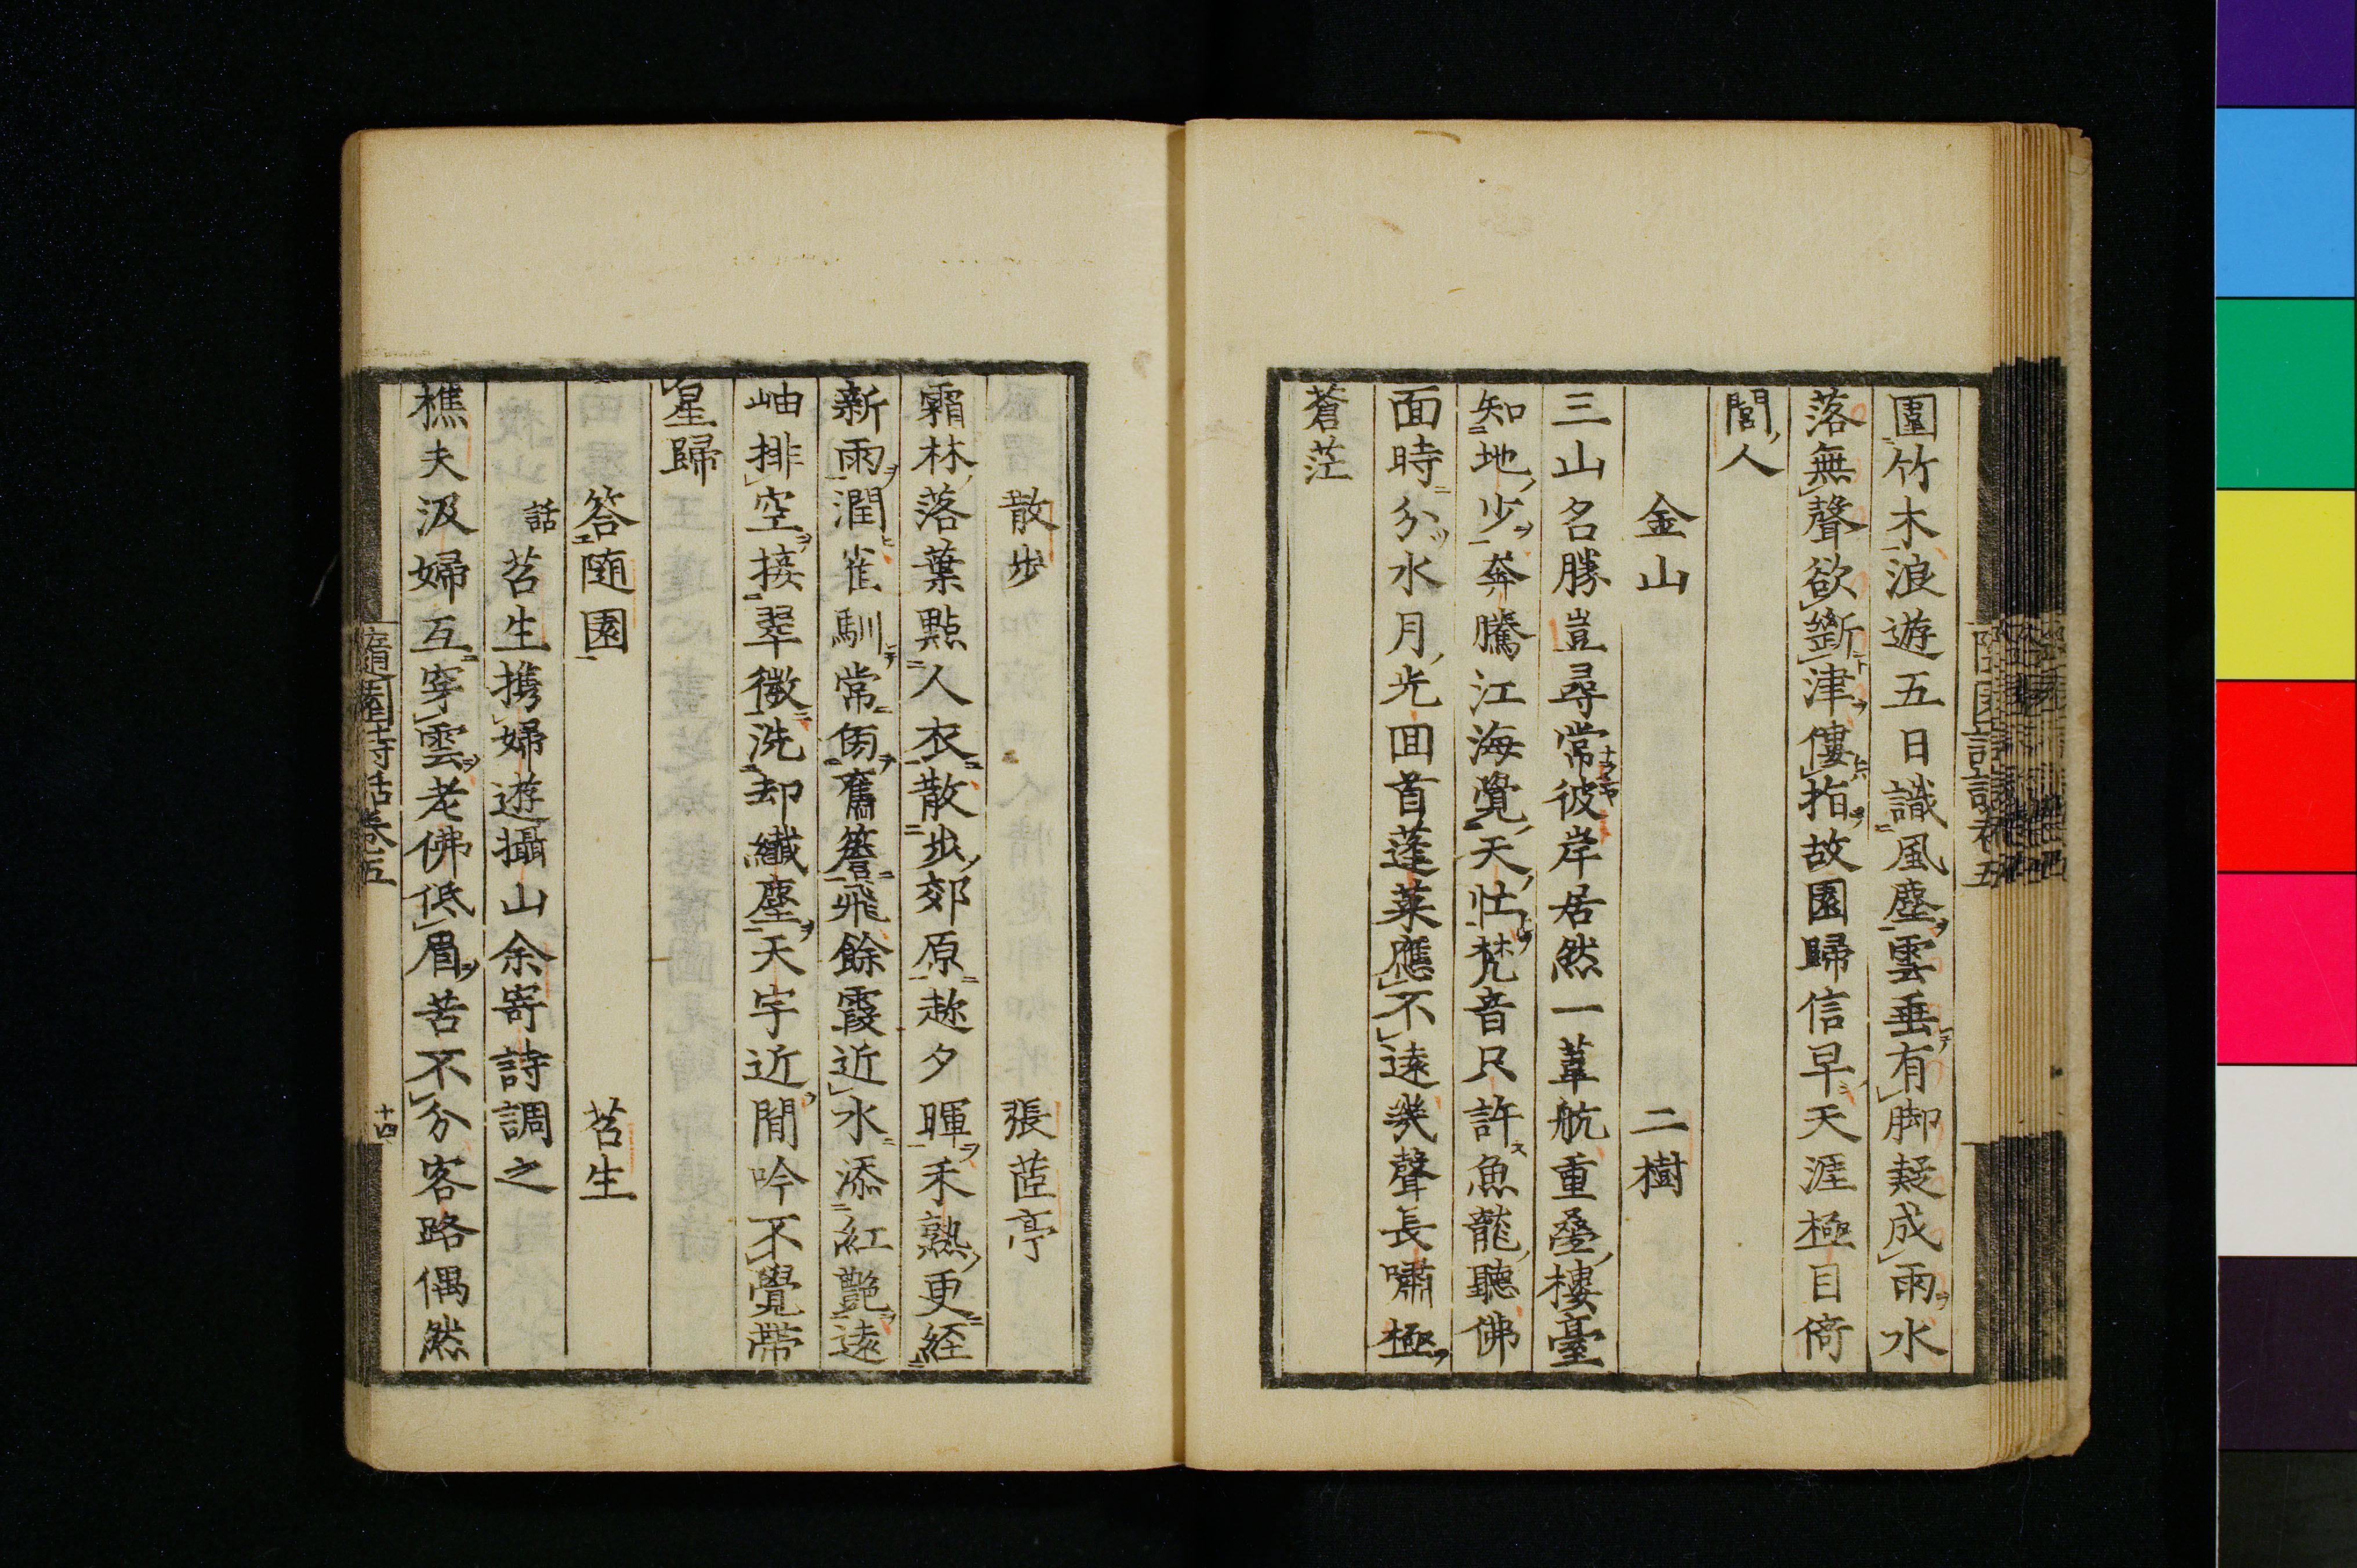 園竹木浪遊五日識風塵雲垂有脚疑成雨水
落無聲欲斷津僂指故園歸信早天涯極目倚
閭人
金山 二樹
三山名勝豈尋常彼岸居然一葦航重疊樓臺
知地少奔騰江海覺天忙梵音只許魚龍聽佛
面時分水月光回首蓬萊應不遠幾聲長嘯極
蒼茫
散步 張茝亭
霜林落葉點人衣散步郊原趂夕暉禾熟更経
新雨潤雀馴常傍舊簷飛餘霞近水添紅艷遠
岫排空接翠微洗却纖塵天宇近閒吟不覺帶
星歸
答随園 苕生
話苕生携婦遊攝山余寄詩調之
樵夫汲婦互穿雲老佛低眉苦不分客路偶然
隨園詩話卷五
十四